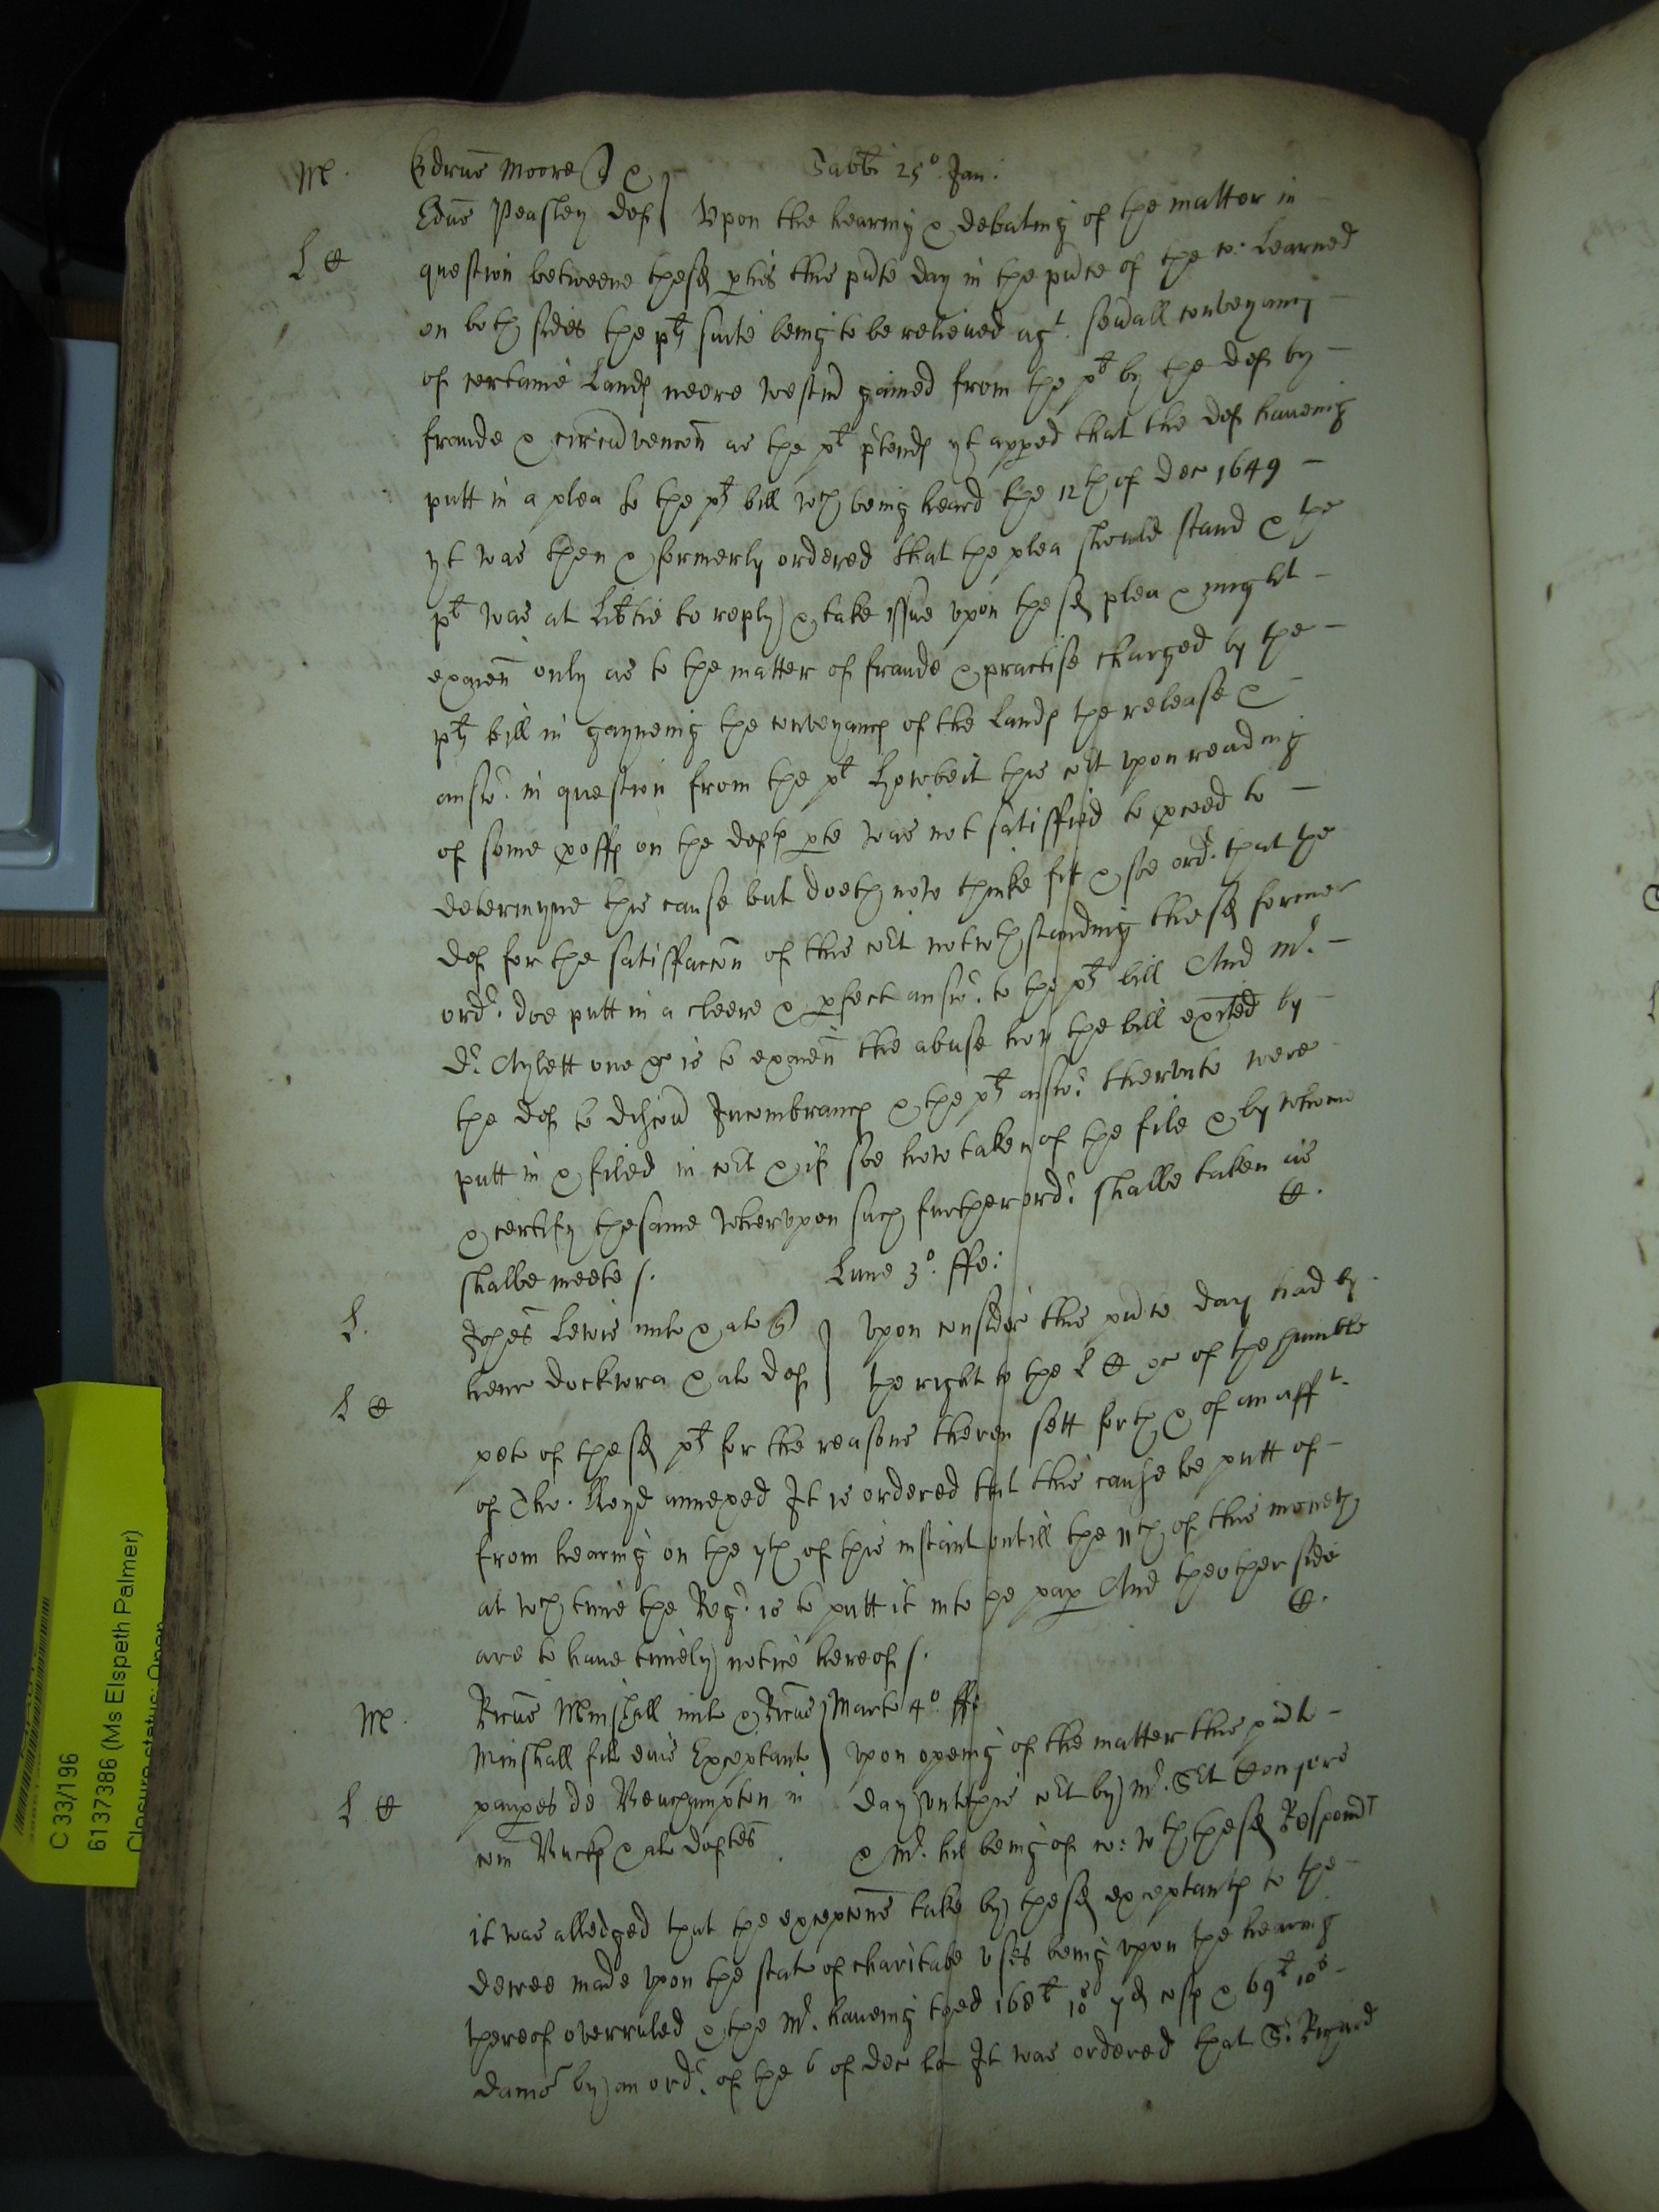 M. Edrus Moore q & Sabbi 25o. Jan:
Edus Peasley def Upon the hearing & debating of the matter in
L C question betweene these pties this pnte day in the pnce of the co: Learned
on both sides the plts suite being to be releived agt. sevall conveyancs
of certaine Lands neere Westmr gained from the plt by the def by
fraude & circuvencon as the plt ptends yt appед that the def haueing
putt in a plea to the plts bill wch being heard the 12th of Dec 1649
yt was then & formerly ordered that the plea should stand & the
plt was at Libtie to reply & take issue upon the sd plea & might
examn only as to the matter of fraude & practise charged by the
plts bill in gayneing the conveyancs of the Lands the release &
answr. in question from the plt Howbeit this cort upon reading
of some proffs on the defts pte was not satisffied to pceed to
determyne this cause but doeth now thinke fit & soe ordr. that the
def for the satisffaccon of this cort notwthstanding the sd former
ordr. doe putt in a cleere & pfect answr. to the plts bill And Mr.
Dr. Aylett one &c is to examn the abuse how the bill exited by
the def to discov Incombrancs & the plts answr. therunto were
putt in & filed in cort & if soe how taken of the file & by whom
& certify the same wherupon such further ordr. shalbe taken as
shalbe meete /. C.
Lune 3o. ffe:
L. Johes Lewis milt & als q Upon consider this pnte day had by
L C henr dockwra & als def the right to the L C &c of the humble
peto of the sd plts for the reasons therein sett forth & of an afft
of Tho. Lloyd annexed It is ordered that this cause be putt of
from hearing on the 7th of this instant untill the 11th of this moneth
at wch time the Regr. is to putt it into the pap And the other side
are to haue timely notice hereof /. C.
M. Ricus Minshall milt & Ricus Marte 4o ffe
Minshall fil eius Exceptants Upon opening of the matter this pnte
L. C paupes de in day unto this cort by Mr. Sct
com Bucks & als deftes & Mr. being of co: wth the sd Respondt
it was alledged that the excepcons take by the sd exceptants to the
decree made upon the state of charitable uses being upon the hearing
thereof overruled & the Mr. haueing taxed 168l 10s 7d costs & 69l 10s
dams by an ordr. of the 6 of dec last It was ordered that Sr. Richard
C 33/196
6137386 (Ms Elspeth Palmer)
Closure status: Open